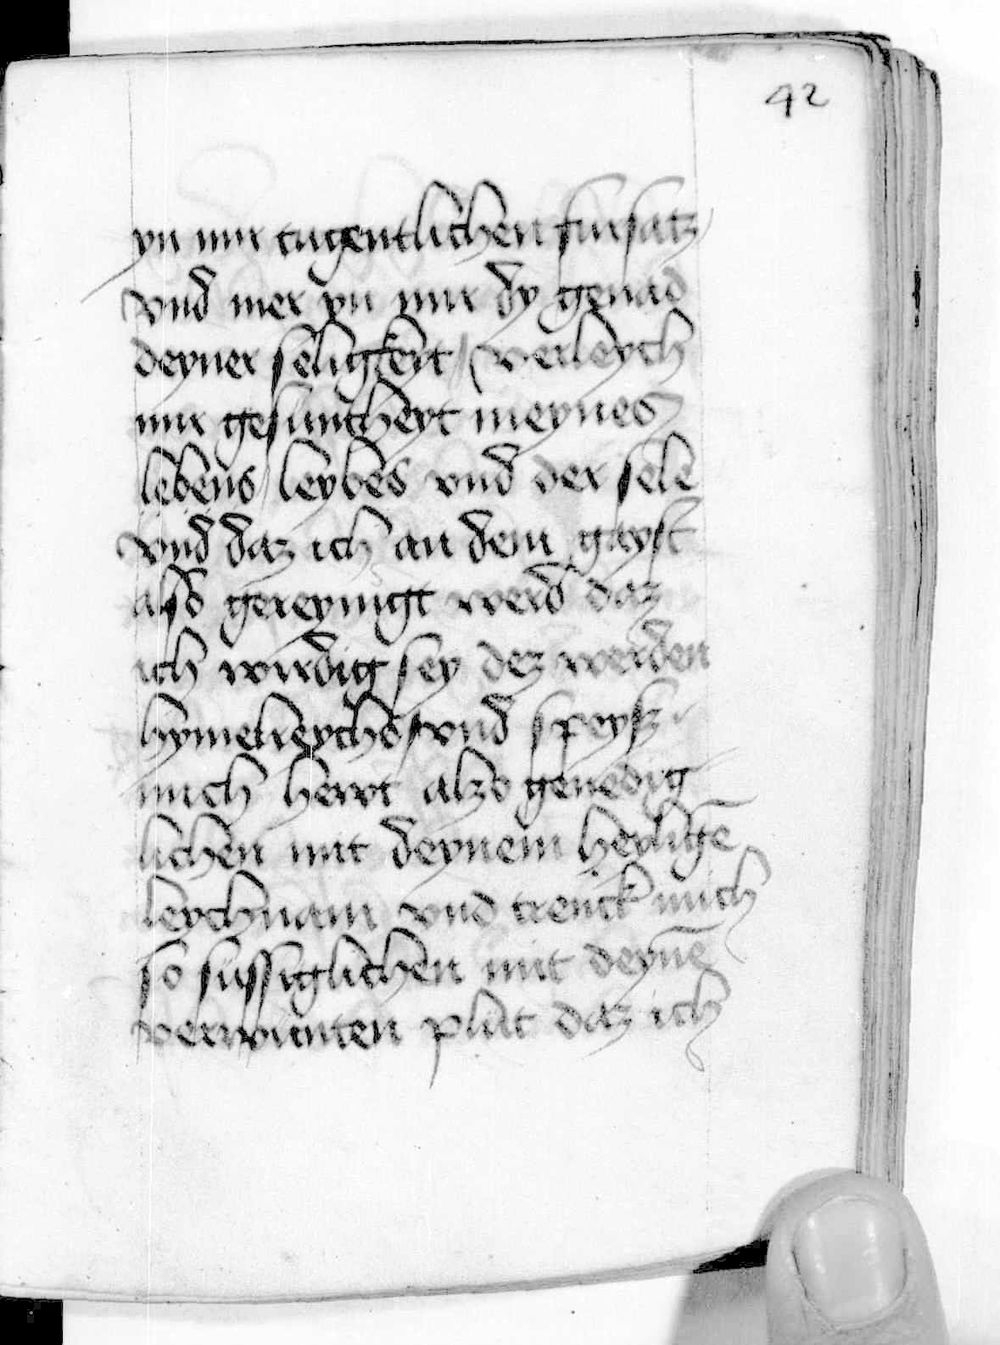 42
yn mir tugentlichen fursatz
vnd mer yn mir dy genad
deyner seligkeyt / verleych
mir gesuntheyt meynes
lebens / leybes vnd der sele
vnd daz ich an dem gayst
also gereynigt werd daz
ich wirdig sey dez werden
hymelreychs / vnd speysz
mich herre alzo genedig
lichen mit deynem heylige͂
leychnam vnd trenck mich
so sussiglichen mit deyne͂
verwunten plut daz ich